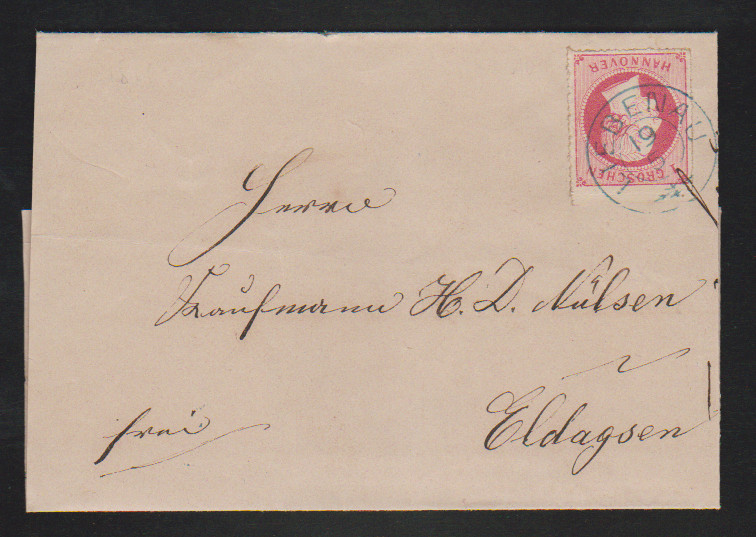 HANNOVER
1 GROSCHEN
LIEBENAU
19
Herrn
Kaufmann H. D. Nülsen
Eldagsen
frei